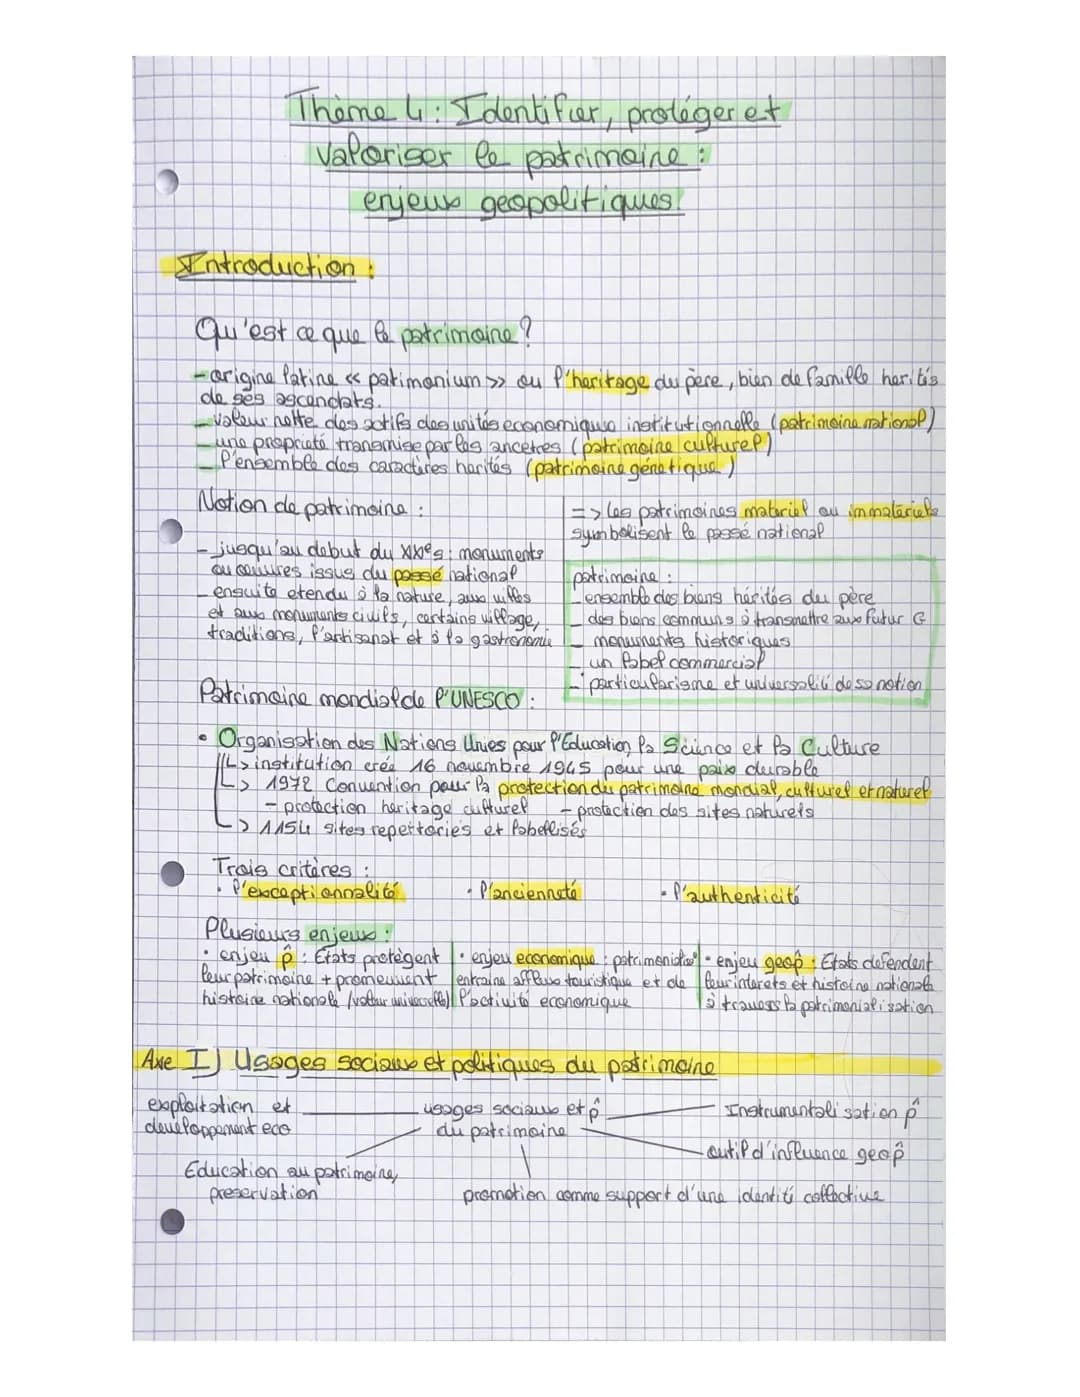 Thème 4 : Identifier, protéger et
valoriser le patrimoine :
enjeux geopolitiques
Introduction :
Qu'est ce que le patrimoine ?
- origine latine << patimonium >> ou l'heritage du père, bien de famille herités
de ses ascendats.
- valeur nette des actifs des unités economique institutionnelle (patrimoine national)
- une propriété transmise par les ancetres (patrimoine culturel)
- l'ensemble des caractères herités (patrimoine génétique)
Notion de patrimoine :
- jusqu'au debut du XIXe s : monuments
ou oeuvres issus du passé national
- ensuite etendu à la nature, aux villes
et aux monuments civils, certains village,
traditions, l'artisanat et à la gastronomie
=> les patrimoines materiel ou immateriels
symbolisent le passé national
patrimoine :
- ensemble des biens hérités du père
- des biens communs à transmettre aux futur G
- monuments historiques
- un label commercial
- particularisme et universalité de sa notion
Patrimoine mondial de l'UNESCO :
• Organisation des Nations Unies pour l'Education, la Science et la Culture
↳ institution crée 16 novembre 1945 pour une paix durable
↳ 1972 Convention pour la protection du patrimoine mondial, culturel et naturel
- protection heritage culturel - protection des sites naturels
↳ 1154 sites repertoriés et labellisés
Trois critères :
• l'exceptionnalité • l'ancienneté • l'authenticité
Plusieurs enjeux :
• enjeu p̂ : États protègent
leur patrimoine + promeuvent
histoire nationale (valeur universelle)
• enjeu economique : patrimonial°
entraine afflux touristique et de
l'activité economique
• enjeu geop̂ : Etats defendent
leur interets et histoire nationale
à travers la patrimonialisation
Axe I) Usages sociaux et politiques du patrimoine
exploitation et
developpement eco
usages sociaux et p̂
du patrimoine
Instrumentalisation p̂
outil d'influence geop̂
Education au patrimoine,
preservation
promotion comme support d'une identité collective